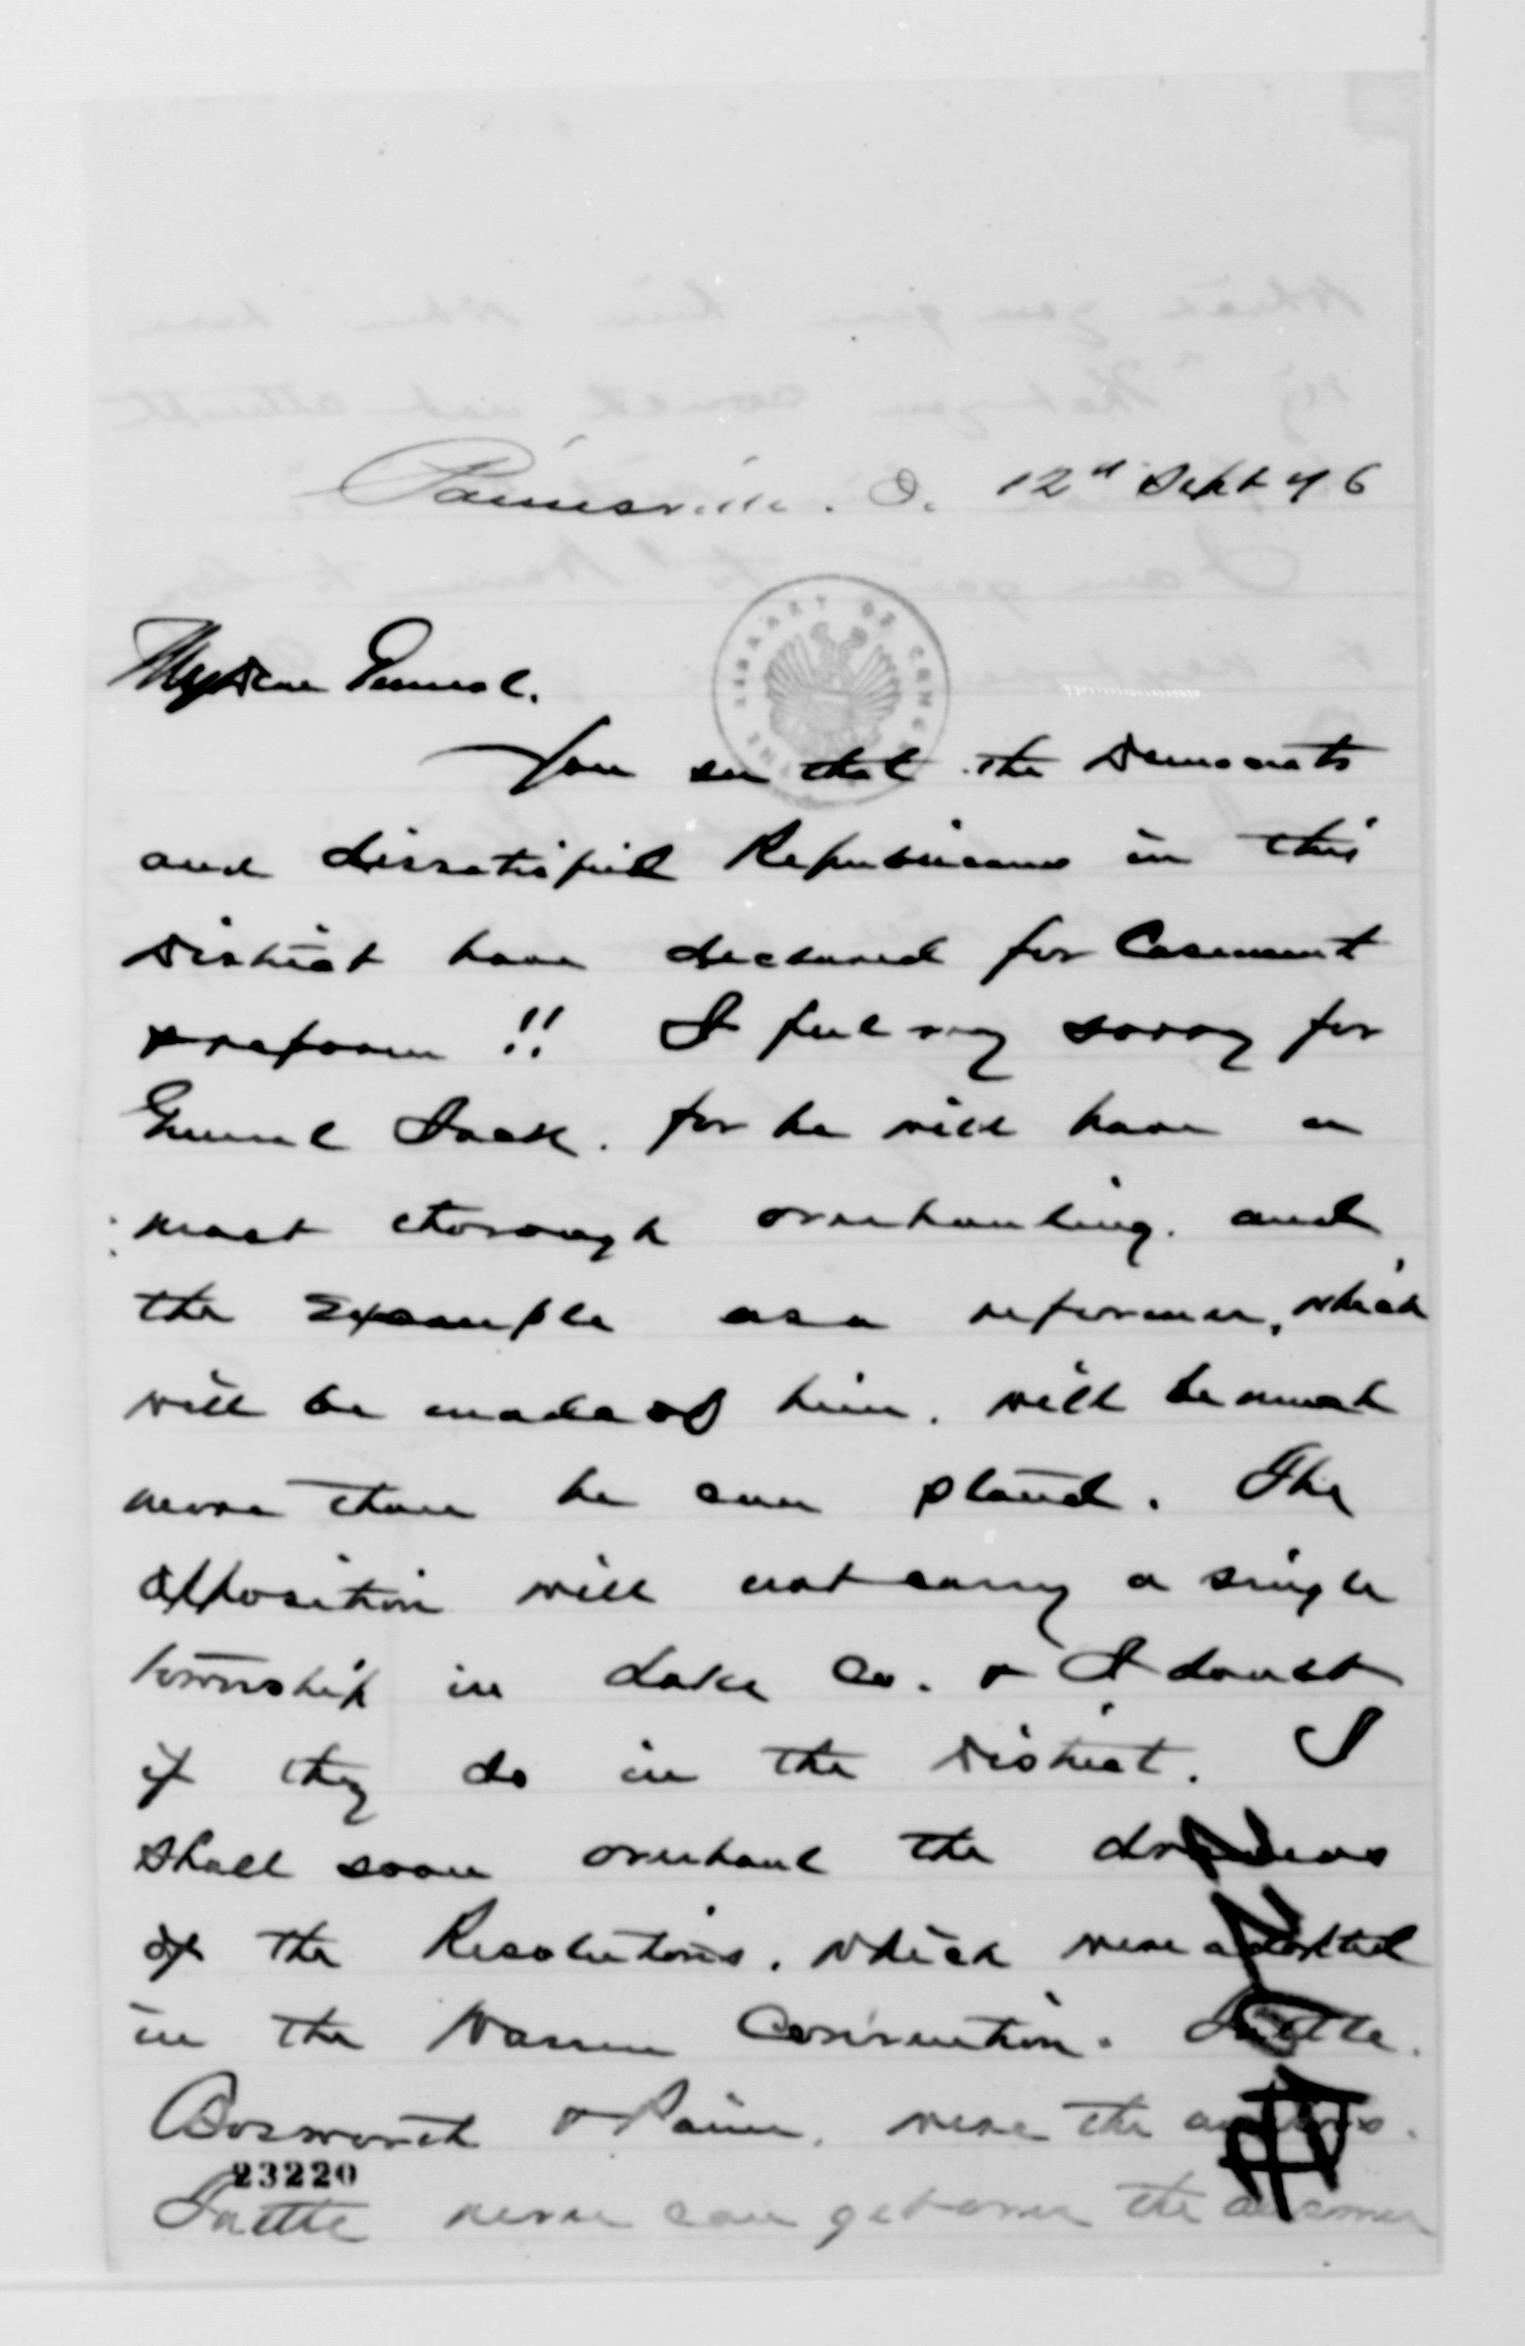 Painesville. O. 12" Sept 76
My Dear General.
You see that the Democrats
and dissatisfied Republicans in this
District have declared for Casement
& reform !! I feel very sorry for
General Jack. for he will have a
most thorough overhauling. and
the example as a reformer, which
will be made of him. will be much
more than he can stand. The
opposition will not carry a single
township in Lake Co. & I doubt
if they do in the District. I
shall soon overhaul the
of the Resolutions. which were adopted
in the Warren Convention. Tuttle.
Bosworth & Paine. were the authors.
23220
Tuttle never can get over the answer
THE LIBRARY OF CONGRESS